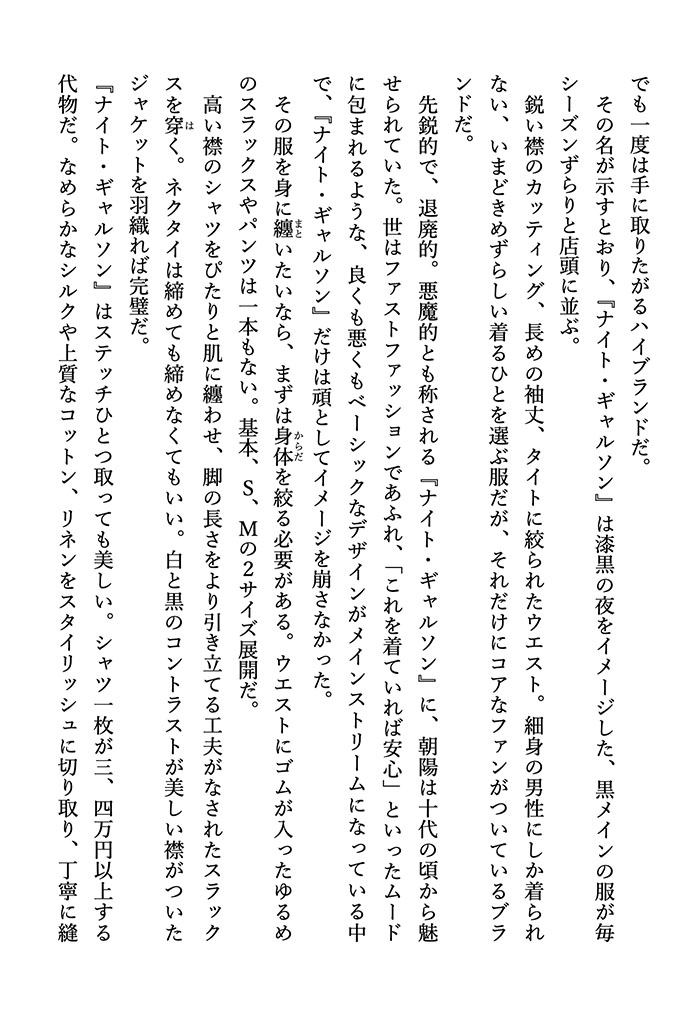 でも一度は手に取りたがるハイブランドだ。
その名が示すとおり、『ナイト・ギャルソン』は漆黒の夜をイメージした、黒メインの服が毎
シーズンずらりと店頭に並ぶ。
鋭い襟のカッティング、長めの袖丈、タイトに絞られたウエスト。細身の男性にしか着られ
ない、いまどきめずらしい着るひとを選ぶ服だが、それだけにコアなファンがついているブラ
ンドだ。
先鋭的で、退廃的。悪魔的とも称される『ナイト・ギャルソン』に、朝陽は十代の頃から魅
せられていた。世はファストファッションであふれ、「これを着ていれば安心」といったムード
に包まれるような、良くも悪くもベーシックなデザインがメインストリームになっている中
で、『ナイト・ギャルソン』だけは頑としてイメージを崩さなかった。
その服を身に纏いたいなら、まずは身体を絞る必要がある。ウエストにゴムが入ったゆるめ
のスラックスやパンツは一本もない。基本、S、Mの2サイズ展開だ。
高い襟のシャツをぴたりと肌に纏わせ、脚の長さをより引き立てる工夫がなされたスラック
スを穿く。ネクタイは締めても締めなくてもいい。白と黒のコントラストが美しい襟がついた
ジャケットを羽織れば完璧だ。
『ナイト・ギャルソン』はステッチひとつ取っても美しい。シャツ一枚が三、四万円以上する
代物だ。なめらかなシルクや上質なコットン、リネンをスタイリッシュに切り取り、丁寧に縫